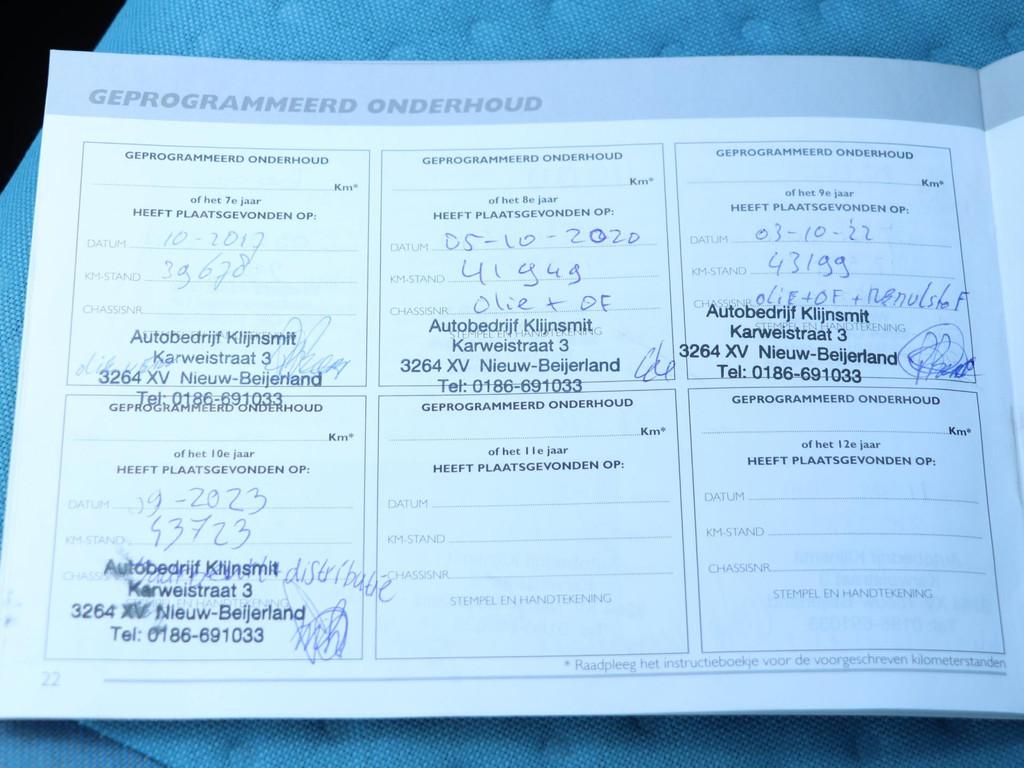 GEPROGRAMMEERD ONDERHOUD
GEPROGRAMMEERD ONDERHOUD
Km*
of het 7e jaar
HEEFT PLAATSGEVONDEN OP:
DATUM 10-2017
KM-STAND 39678
CHASSISNR.
Autobedrijf Klijnsmit
Karweistraat 3
3264 XV Nieuw-Beijerland
Tel: 0186-691033
GEPROGRAMMEERD ONDERHOUD
Km*
of het 8e jaar
HEEFT PLAATSGEVONDEN OP:
DATUM 05-10-2020
KM-STAND 41949
CHASSISNR. olie + OF
STEMPEL EN HANDTEKENING
Autobedrijf Klijnsmit
Karweistraat 3
3264 XV Nieuw-Beijerland
Tel: 0186-691033
GEPROGRAMMEERD ONDERHOUD
Km*
of het 9e jaar
HEEFT PLAATSGEVONDEN OP:
DATUM 03-10-22
KM-STAND 43199
CHASSISNR. olie + OF + Remvlstof
STEMPEL EN HANDTEKENING
Autobedrijf Klijnsmit
Karweistraat 3
3264 XV Nieuw-Beijerland
Tel: 0186-691033
GEPROGRAMMEERD ONDERHOUD
Km*
of het 10e jaar
HEEFT PLAATSGEVONDEN OP:
DATUM 9-2023
KM-STAND 43723
CHASSISNR. distributie
STEMPEL EN HANDTEKENING
Autobedrijf Klijnsmit
Karweistraat 3
3264 XV Nieuw-Beijerland
Tel: 0186-691033
GEPROGRAMMEERD ONDERHOUD
Km*
of het 11e jaar
HEEFT PLAATSGEVONDEN OP:
DATUM
KM-STAND
CHASSISNR.
STEMPEL EN HANDTEKENING
GEPROGRAMMEERD ONDERHOUD
Km*
of het 12e jaar
HEEFT PLAATSGEVONDEN OP:
DATUM
KM-STAND
CHASSISNR.
STEMPEL EN HANDTEKENING
* Raadpleeg het instructieboekje voor de voorgeschreven kilometerstanden
22